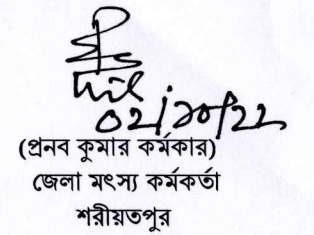 ০২/১০/২২
(প্রনব কুমার কর্মকার)
জেলা মৎস্য কর্মকর্তা
শরীয়তপুর